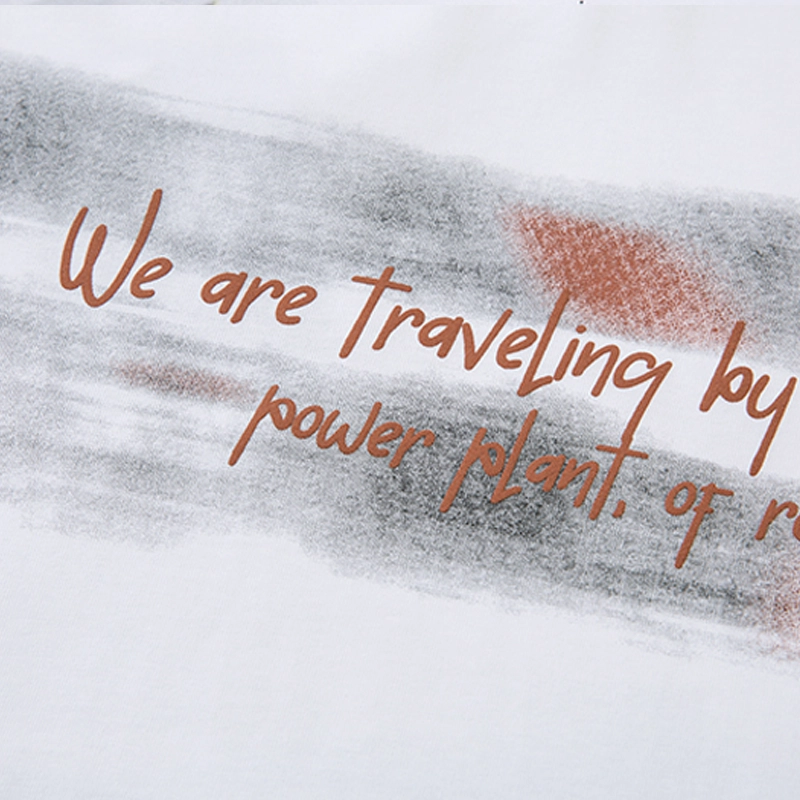 We are traveling by
power plant, of